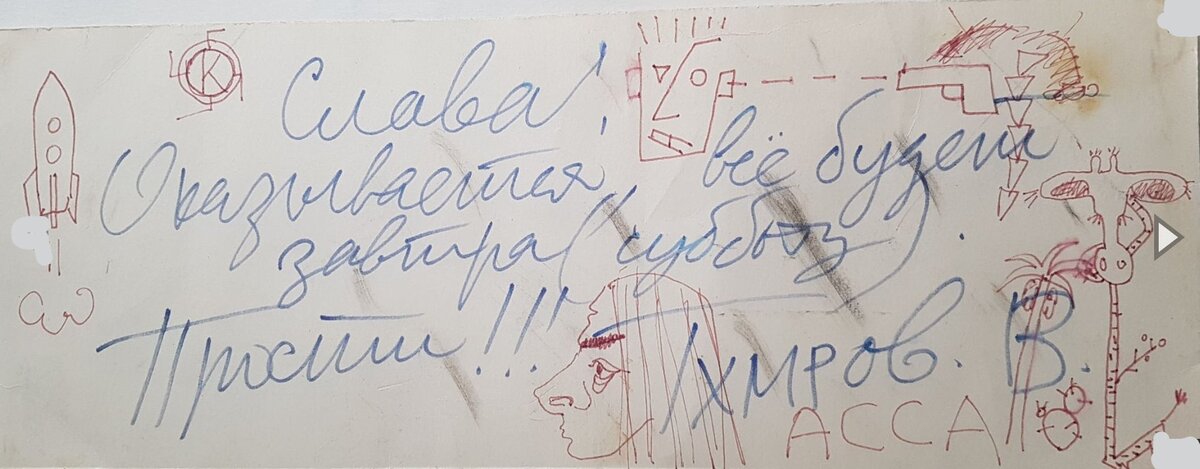 К
Слава!
Оказывается, всё будет
завтра (суббота).
Прости!!! Тхмров. В.
АССА